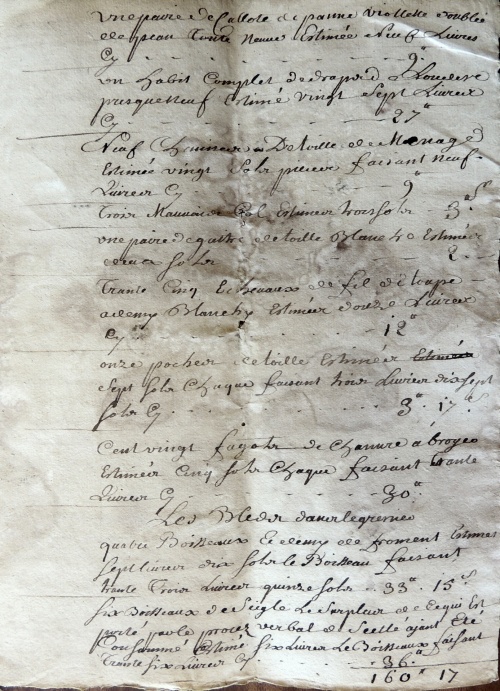 une paire de Callote de panne viollette doublée
de peau toute neuve Estimée neuf Livres
Cy 9"
un habit Complet de drap d
presque neuf Estimé vingt sept Livres
Cy 27"
Neuf Chemises De toille de Menage
Estimées vingt sols piece faisant neuf
Livres Cy 9"
trois Mauvais Col Estimés trois sols 3 s
une paire de guetre de toille Blanche Estimée
deux sols 2
trante Cinq Echevaux de fil d'étoupe
a demy Blanchy Estimés douze Livres
Cy 12"
onze poches de toille Estimées Estimées
sept sols Chaque faisant trois Livres dix sept
sols Cy 3" 17 s
Cent vingt fagots de Chanvre a broyer
Estimés Cinq sols Chaque faisant trante
Livres Cy 30"
Les Bleds dans le grenier
quatre Boisseaux Et demy de froment Estimés
sept livres dix sols le Boisseau faisant
trante trois Livres quinze sols 33" 15 s
six Boisseaux de seigle Le surplus de Ce qui Est
porté par le procez verbal de scellé ayant Eté
Consommé Estimé six Livres Le Boisseaux faisant
trante six Livres Cy 36"
160" 17